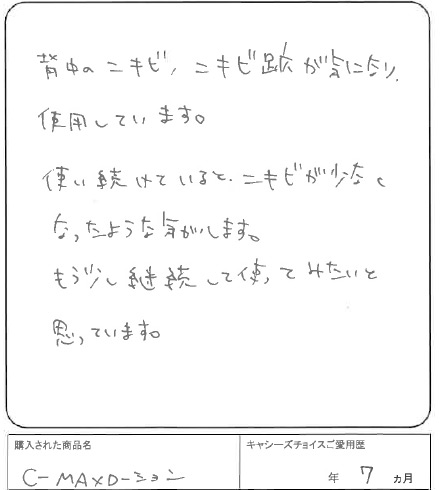 背中のニキビ、ニキビ跡が気になり、
使用しています。
使い続けていると、ニキビが少なく
なったような気がします。
もう少し継続して使ってみたいと
思っています。
購入された商品名
C-MAXローション
キャシーズチョイスご愛用歴
年 7 ヵ月